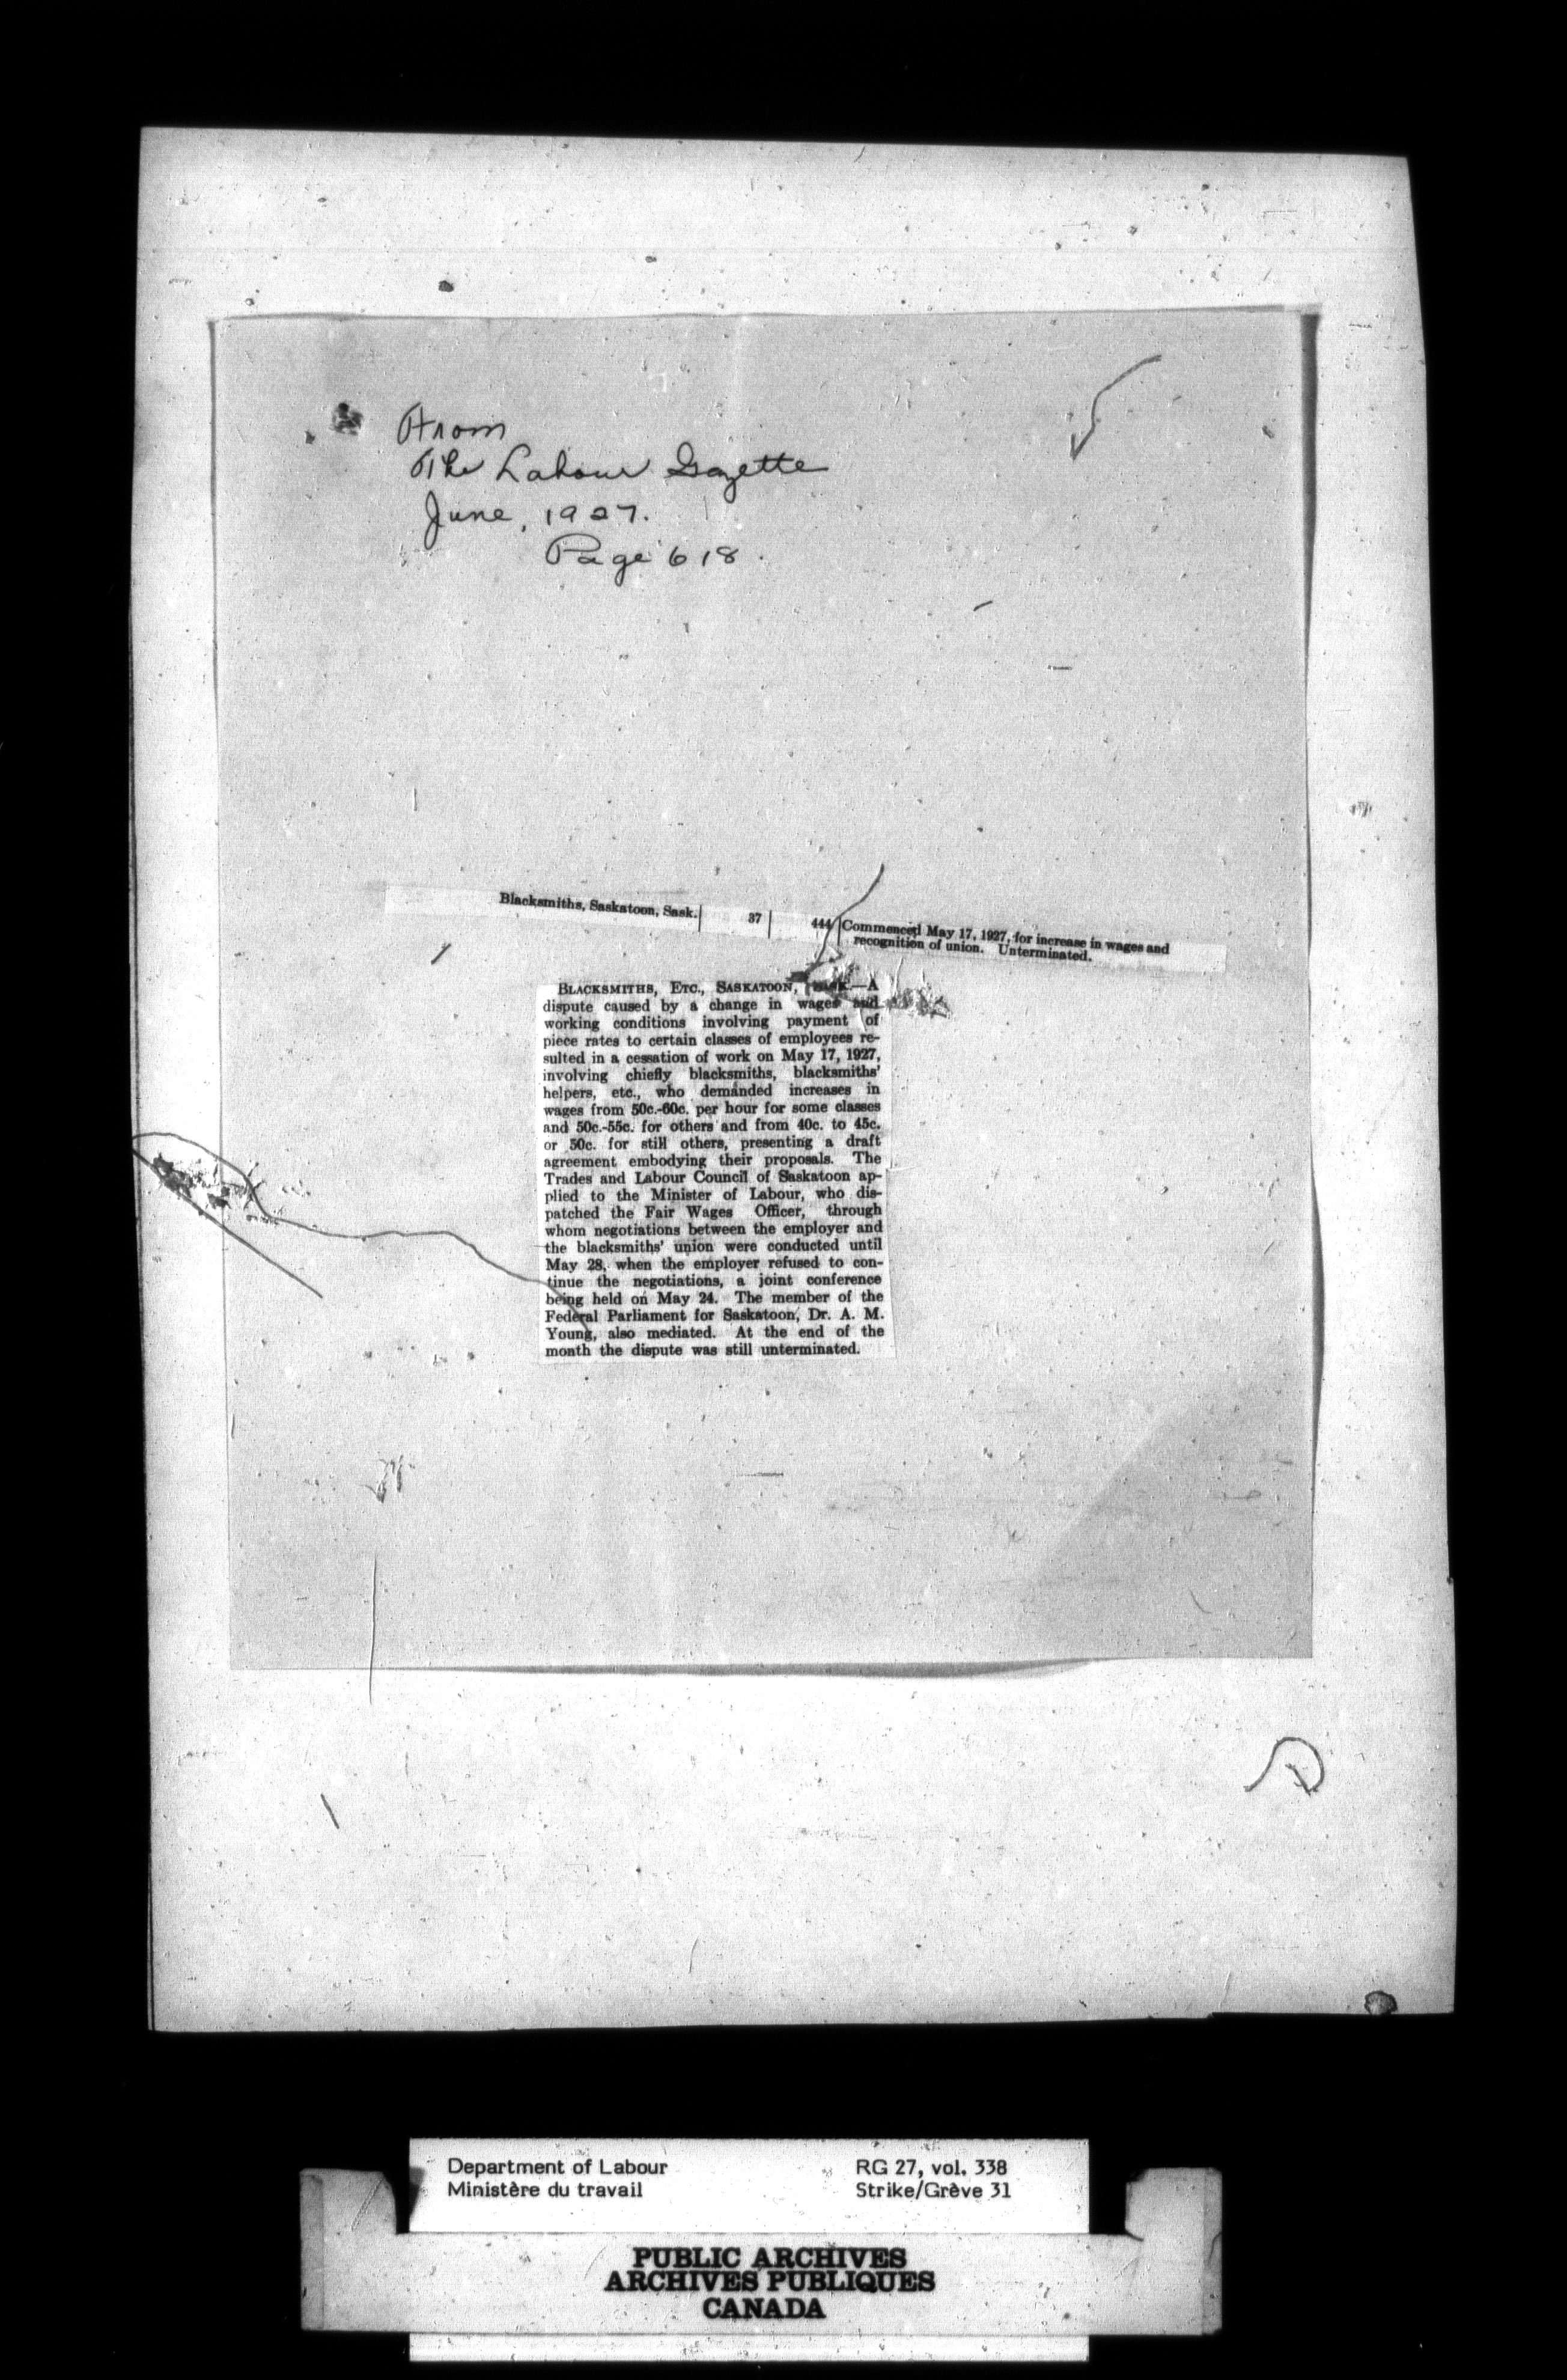 From
The Labour Gazette
June, 1927.
Page 618.
Blacksmiths, Saskatoon, Sask. 37 444 Commenced May 17, 1927, for increase in wages and
recognition of union. Unterminated.
BLACKSMITHS, ETC., SASKATOON, SASK.—A
dispute caused by a change in wages and
working conditions involving payment of
piece rates to certain classes of employees re-
sulted in a cessation of work on May 17, 1927,
involving chiefly blacksmiths, blacksmiths'
helpers, etc., who demanded increases in
wages from 50c.-60c. per hour for some classes
and 50c.-55c. for others and from 40c. to 45c.
or 50c. for still others, presenting a draft
agreement embodying their proposals. The
Trades and Labour Council of Saskatoon ap-
plied to the Minister of Labour, who dis-
patched the Fair Wages Officer, through
whom negotiations between the employer and
the blacksmiths' union were conducted until
May 28, when the employer refused to con-
tinue the negotiations, a joint conference
being held on May 24. The member of the
Federal Parliament for Saskatoon, Dr. A. M.
Young, also mediated. At the end of the
month the dispute was still unterminated.
Department of Labour RG 27, vol. 338
Ministère du travail Strike/Grève 31
PUBLIC ARCHIVES
ARCHIVES PUBLIQUES
CANADA